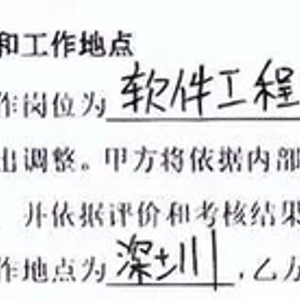 和工作地点
作岗位为软件工程
出调整。甲方将依据内部
并依据评价和考核结果
作地点为深圳,乙方